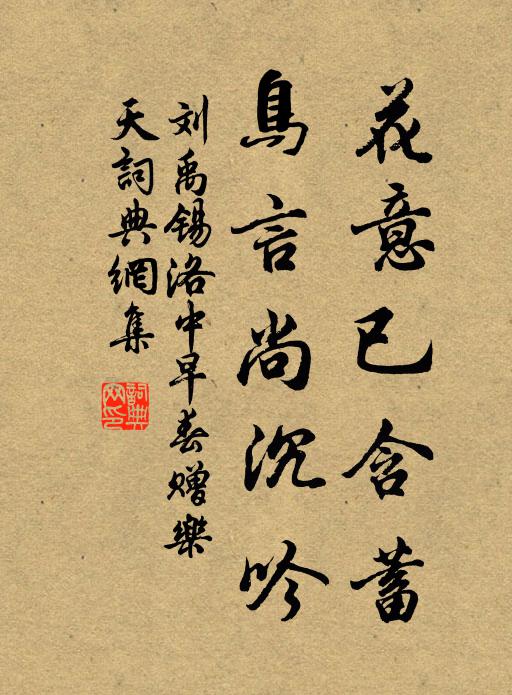 花意已含蓄
鳥言尚沉吟
刘禹锡洛中早春赠樂
天詞典網集
詞典
网印